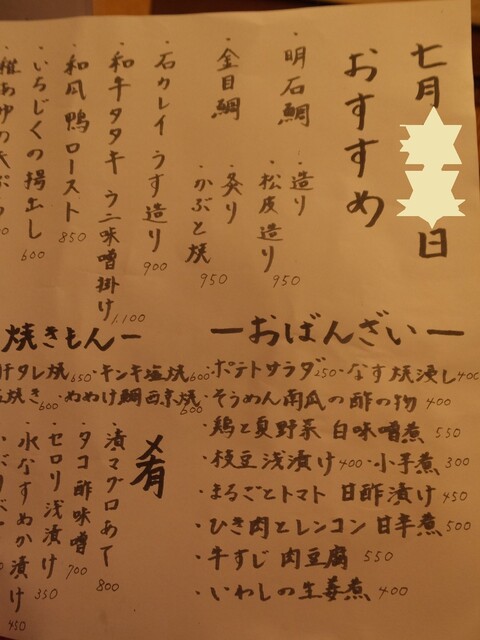 七月 日
おすすめ
・明石鯛 ・造り
松皮造り 950
・金目鯛 ・炙り
・かぶと焼 950
・石カレイ うす造り 900
・和牛タタキ ウニ味噌掛け 1,100
・和風鴨ロースト 850
・いちじくの揚出し 600
稚あゆの天ぷら
ーおばんざいー
・ポテトサラダ350・なす焼浸し400
・そうめん南瓜の酢の物 400
・鶏と夏野菜 白味噌煮 550
・枝豆浅漬け400・小芋煮300
・まるごとトマト 甘酢漬け450
・ひき肉とレンコン 甘辛煮500
・牛すじ 肉豆腐 550
・いわしの生姜煮 400
焼きもんー
タレ焼650・キンキ塩焼600
焼き600・ぬぬけ鯛西京焼600
肴
・漬マグロあて 800
・タコ酢味噌 700
・セロリ浅漬け 350
・水なすぬか漬け 450